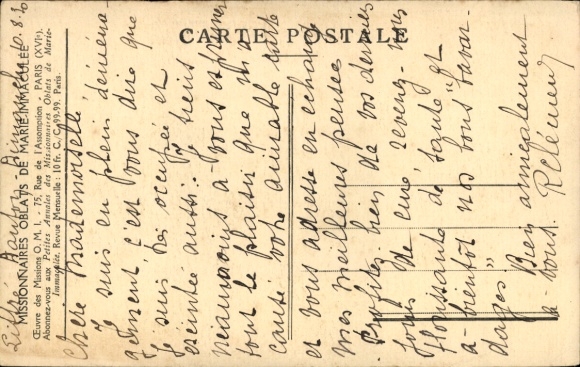 CARTE POSTALE
MISSIONNAIRES OBLATS DE MARIE-IMMACULÉE
Œuvre des Missions O. M. I. - 75, Rue de l'Assomption - PARIS (XVIe).
Abonnez-vous aux Petites Annales des Missionnaires Oblats de Marie-
Immaculée. Revue Mensuelle : 10 fr. C./C. 99-99. Paris.
Dimanche 10.8.30
Chère Mademoiselle
Je suis en plein déména-
gement, c'est vous dire que
je suis très occupée et
éreintée aussi. Je tiens
néanmoins à vous exprimer
tout le plaisir que m'a
causé votre aimable carte
et vous adresse en échange
mes meilleures pensées.
Profitez bien de vos derniers
jours de cure, revenez-nous
florissante de santé et
à bientôt nos bons bavar-
dages. Bien amicalement
à vous.